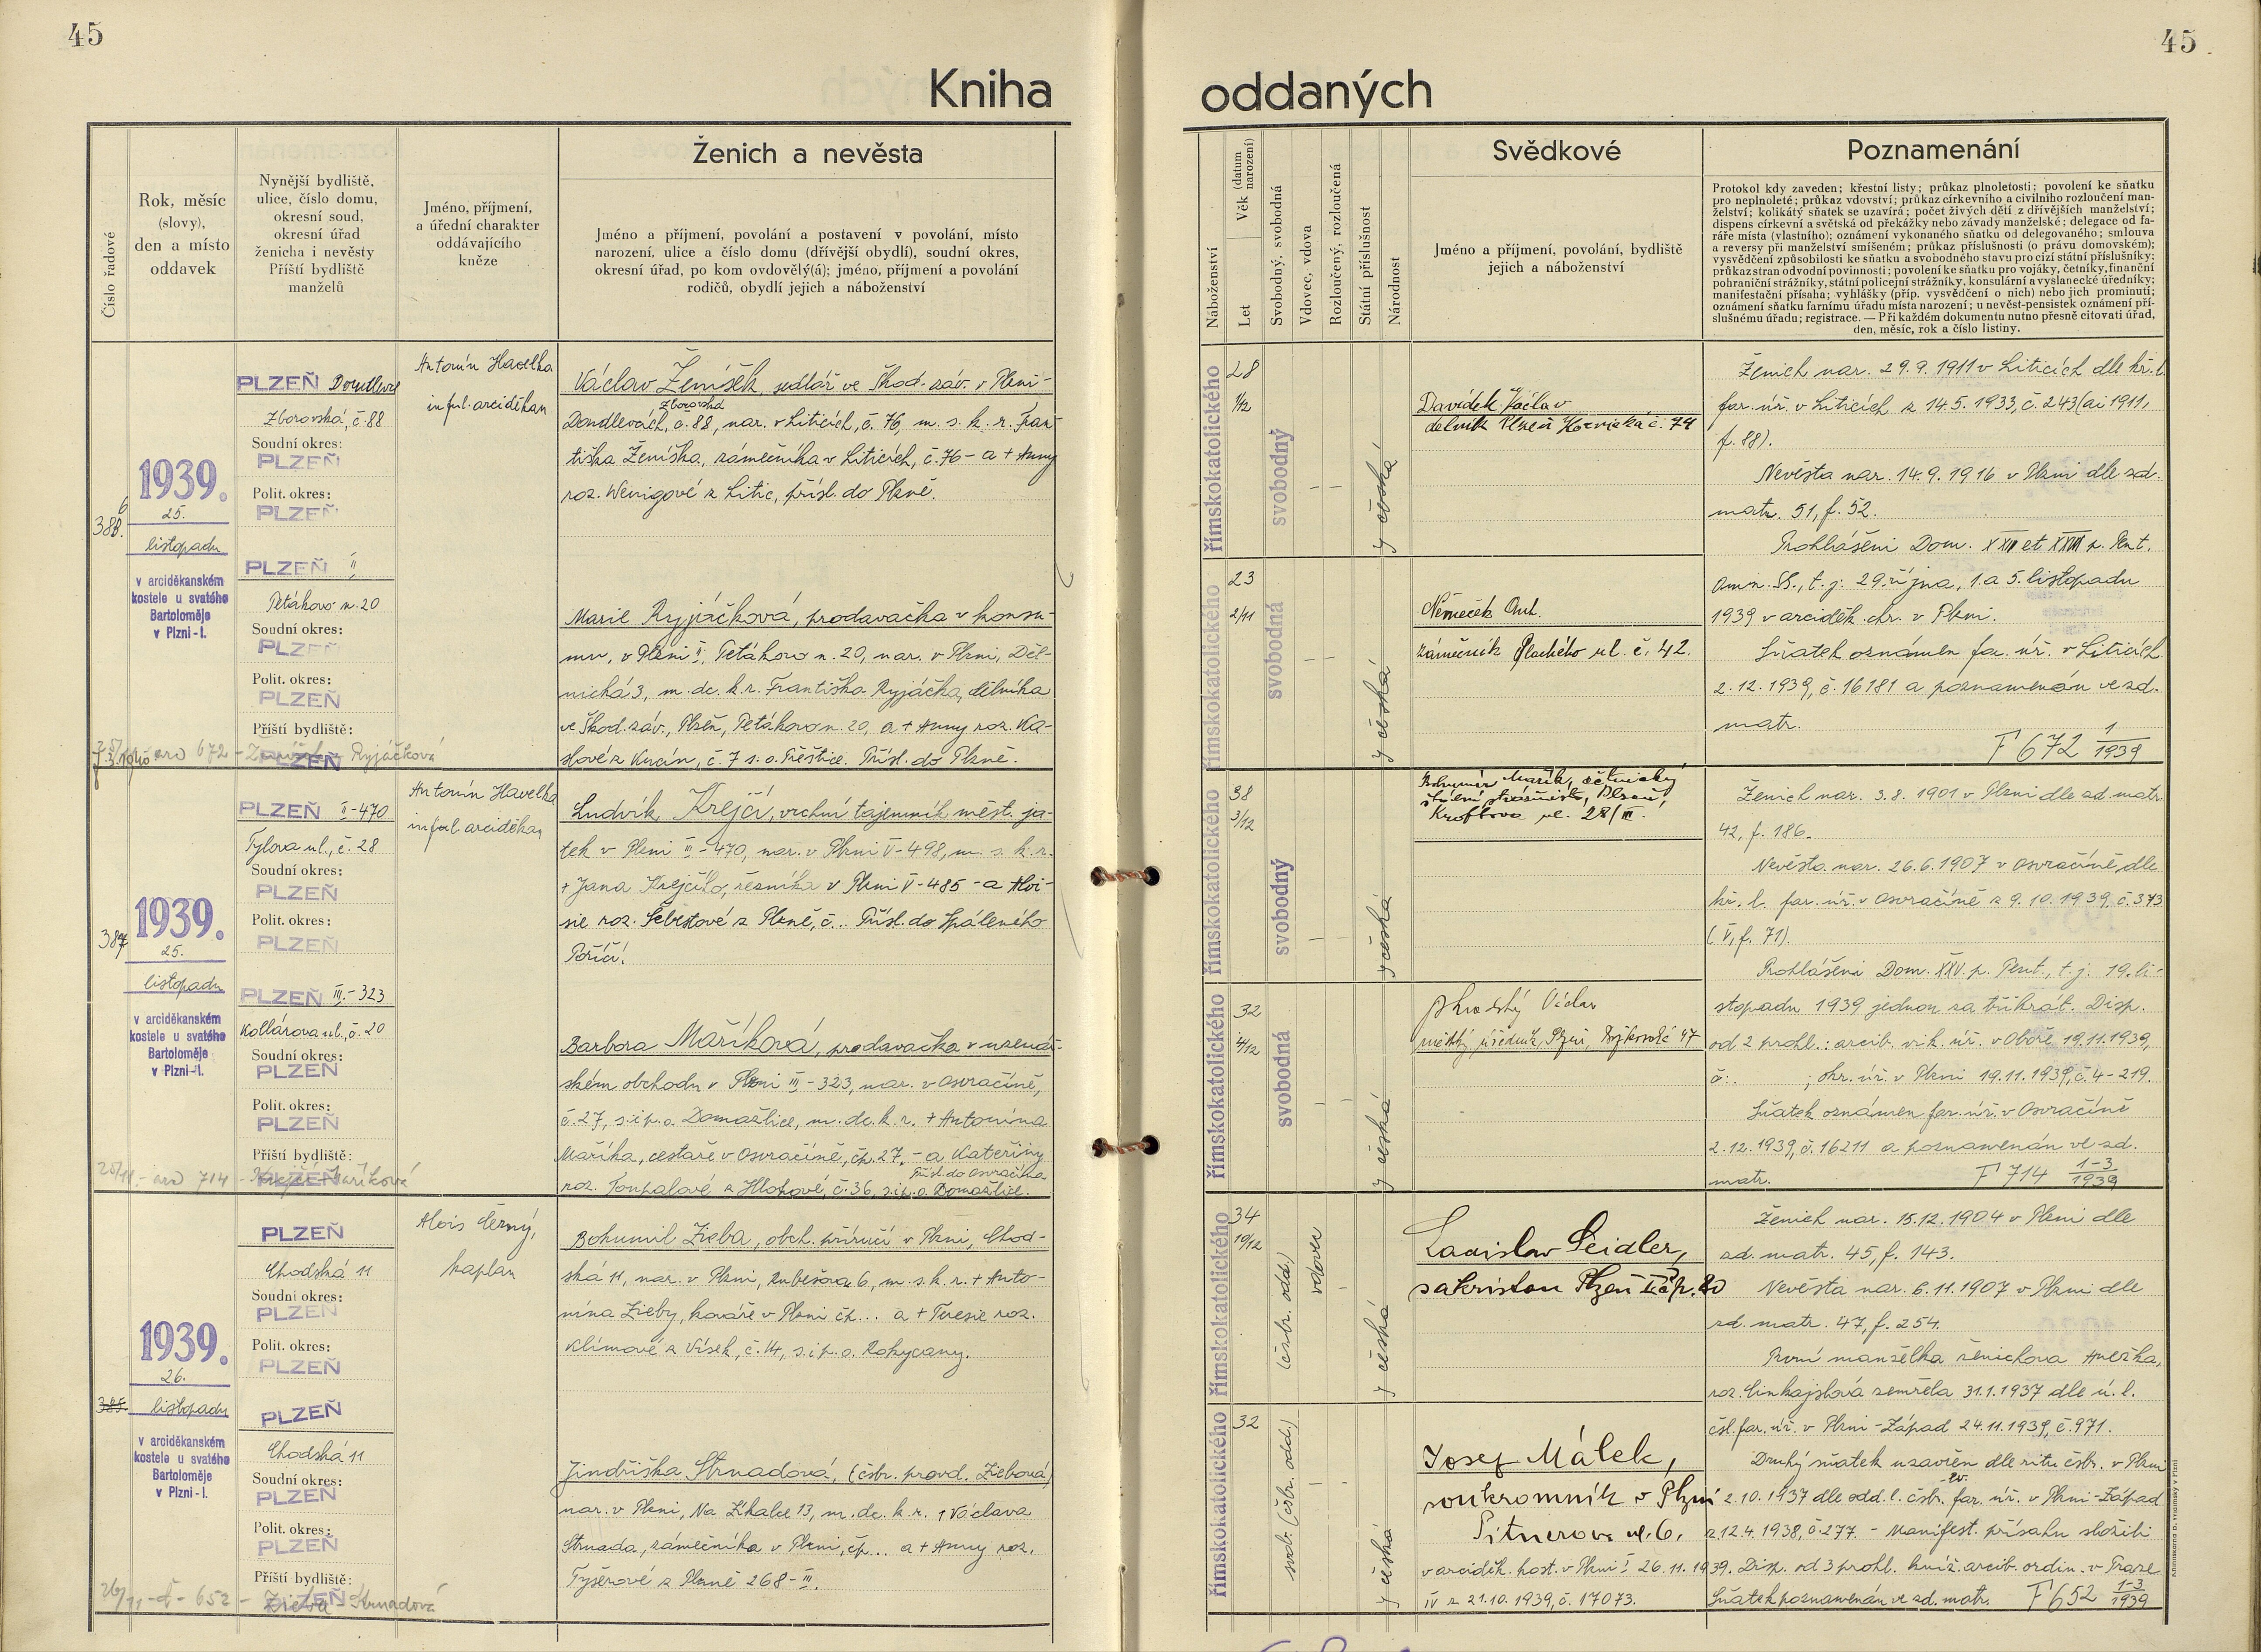 45
45
Kniha
oddaných
Číslo řadové
Rok, měsíc
(slovy),
den a místo
oddavek
Nynější bydliště,
ulice, číslo domu,
okresní soud,
okresní úřad
ženicha i nevěsty
Příští bydliště
manželů
Jméno, příjmení,
a úřední charakter
oddávajícího
kněze
Ženich a nevěsta
Jméno a příjmení, povolání a postavení v povolání, místo
narození, ulice a číslo domu (dřívější obydlí), soudní okres,
okresní úřad, po kom ovdovělý(á); jméno, příjmení a povolání
rodičů, obydlí jejich a náboženství
Náboženství
Věk (datum narození)
Let
Svobodný, svobodná
Vdovec, vdova
Rozloučený, rozloučená
Státní příslušnost
Národnost
Svědkové
Jméno a příjmení, povolání, bydliště
jejich a náboženství
Poznamenání
Protokol kdy zaveden; křestní listy; průkaz plnoletosti; povolení ke sňatku
pro nepLnoleté; průkaz vdovství; průkaz církevního a civilního rozloučení man-
želství; kolikátý sňatek se uzavírá; počet živých dětí z dřívějších manželství;
dispens církevní a světská od překážky nebo závady manželské; delegace od fa-
ráře místa (vlastního); oznámení vykonaného sňatku od delegovaného; smlouva
a reversy při manželství smíšeném; průkaz příslušnosti (o právu domovském);
vysvědčení způsobilosti ke sňatku a svobodného stavu pro cizí státní příslušníky;
průkaz stran odvodní povinnosti; povolení ke sňatku pro vojáky, četníky, finanční
pohraniční strážníky, státní policejní strážníky, konsulární a vyslanecké úředníky;
manifestační přísaha; vyhlášky (příp. vysvědčení o nich) nebo jich prominutí;
oznámení sňatku farnímu úřadu místa narození; u nevěst-pensistek oznámení pří-
slušnému úřadu; registrace. — Při každém dokumentu nutno přesně citovati úřad,
den, měsíc, rok a číslo listiny.
386.
1939.
25.
listopadu
v arciděkanském
kostele u svatého
Bartoloměje
v Plzni-I.
PLZEŇ Doudlevce
Zborovská, č. 88
Soudní okres:
PLZEŇ
Polit. okres:
PLZEŇ
PLZEŇ II
Petákova n. 20
Soudní okres:
PLZEŇ
Polit. okres:
PLZEŇ
Příští bydliště:
PLZEŇ
672 - Ženíšek - Ryjáčková
Antonín Havelka
inful. arciděkan
Václav Ženíšek, sedlář ve Škod. záv. v Plzni-
Zborovská
Doudlevcích, č. 88, nar. v Liticích, č. 76, m. s. k. r. Fran-
tiška Ženíška, zámečníka v Liticích, č. 76 - a + Anny
roz. Wenigové z Litic, přísl. do Plzně.
Marie Ryjáčková, prodavačka v konsu-
mu, v Plzni II, Petákova n. 20, nar. v Plzni, Děl-
nická 3, m. dc. k. r. Františka Ryjáčka, dělníka
ve Škod. záv., Plzeň, Petákova n. 20, a + Anny roz. Ka-
slové z Kucín, č. 7 s. o. Přeštice. Přísl. do Plzně.
římskokatolického
28
1/12
svobodný
—
—
y česká
Davídek Václav
dělník Plzeň č. 74
římskokatolického
23
2/11
svobodná
—
—
y česká
Němeček Ant.
zámečník Plachého ul. č. 42.
Ženich nar. 29. 9. 1911 v Liticích dle kř. l.
far. úř. v Liticích z 14. 5. 1933, č. 243 (ai 1911,
f. 88).
Nevěsta nar. 14. 9. 1916 v Plzni dle zd.
matr. 51, f. 52.
Prohlášeni Dom. XXII et XXIII p. Pent.
Omn. SS., t. j. 29. října, 1. a 5. listopadu
1939 v arciděk. chr. v Plzni.
Sňatek oznámen far. úř. v Liticích
2. 12. 1939, č. 16181 a poznamenán ve zd.
matr.
F 672 1/1939
387
1939.
25.
listopadu
v arciděkanském
kostele u svatého
Bartoloměje
v Plzni-I.
PLZEŇ II-470
Tylova ul., č. 28
Soudní okres:
PLZEŇ
Polit. okres:
PLZEŇ
PLZEŇ III.-323
Kollárova ul., č. 20
Soudní okres:
PLZEŇ
Polit. okres:
PLZEŇ
Příští bydliště:
PLZEŇ
714 - Krejčí - Maříková
Antonín Havelka
inful. arciděkan
Ludvík Krejčí, vrchní tajemník měst. ja-
tek v Plzni III-470, nar. v Plzni V-498, m. s. k. r.
+ Jana Krejčího, řezníka v Plzni V-485 - a Aloi-
sie roz. Šebestové z Plzně, č... Přísl. do Spáleného
Poříčí.
Barbora Maříková, prodavačka v uzenář-
ském obchodu v Plzni III-323, nar. v Osvračíně,
č. 27, s. i p. o. Domažlice, m. dc. k. r. + Antonína
Maříka, cestáře v Osvračíně, čp. 27, - a Kateřiny
Přísl. do Osvračína
roz. Toupalové z Hlohové, č. 36, s. i p. o. Domažlice.
římskokatolického
38
3/12
svobodný
—
—
y česká
Bohumír Mařík, četnický
Plzeň,
Kroftova ul. 28/III.
římskokatolického
32
4/12
svobodná
—
—
y česká
Václav
úředník, Plzeň, 47
Ženich nar. 3. 8. 1901 v Plzni dle zd. matr.
42, f. 186.
Nevěsta nar. 26. 6. 1907 v Osvračíně dle
kř. l. far. úř. v Osvračíně z 9. 10. 1939, č. 373
(V, f. 71).
Prohlášeni Dom. XXV. p. Pent., t. j. 19. li-
stopadu 1939 jednou za třikrát. Disp.
od 2 prohl.: arcib. vik. úř. v Oboře 19. 11. 1939,
č. ; okr. úř. v Plzni 19. 11. 1939, č. 4-219.
Sňatek oznámen far. úř. v Osvračíně
2. 12. 1939, č. 16211 a poznamenán ve zd.
matr.
F 714 1-3/1939
385.
1939.
26.
listopadu
v arciděkanském
kostele u svatého
Bartoloměje
v Plzni-I.
PLZEŇ
Chodská 11
Soudní okres:
PLZEŇ
Polit. okres:
PLZEŇ
PLZEŇ
Chodská 11
Soudní okres:
PLZEŇ
Polit. okres:
PLZEŇ
Příští bydliště:
PLZEŇ
26/11 - č - 652 - Zieba - Strnadová
Alois Černý,
kaplan
Bohumil Zieba, obch. příručí v Plzni, Chod-
ská 11, nar. v Plzni, Kubešova 6, m. s. k. r. + Anto-
nína Zieby, kováře v Plzni čp... a + Terezie roz.
Klímové z Vísek, č. 14, s. i p. o. Rokycany.
Jindřiška Strnadová, (čsbr. provd. Ziebová)
nar. v Plzni, Na Lhalce 13, m. dc. k. r. + Václava
Strnada, zámečníka v Plzni, čp... a + Anny roz.
Tyšerové z Plzně 268-III.
římskokatolického
34
19/12
(čsbr. odd.)
vdovec
—
y česká
Ladislav Seidler,
sakristan Plzeň čp. 20
římskokatolického
32
svob. (čsbr. odd.)
—
—
y česká
Josef Málek,
soukromník v Plzni
Pitnerova ul. 6.
Ženich nar. 15. 12. 1904 v Plzni dle
zd. matr. 45, f. 143.
Nevěsta nar. 6. 11. 1907 v Plzni dle
zd. matr. 47, f. 254.
První manželka ženichova Anežka,
roz. Linhajslová zemřela 31. 1. 1937 dle ú. l.
čsl. far. úř. v Plzni-Západ 24. 11. 1939, č. 971.
Druhý sňatek uzavřen dle ritu čsbr. v Plzni
ev.
2. 10. 1937 dle odd. l. čsbr. far. úř. v Plzni-Západ
z 12. 4. 1938, č. 277. - Manifest. přísahu složili
v arciděk. kost. v Plzni I 26. 11. 1939. Disp. od 3 prohl. kníž. arcib. ordin. v Praze
IV z 21. 10. 1939, č. 17073. Sňatek poznamenán ve zd. matr. F 652 1-3/1939